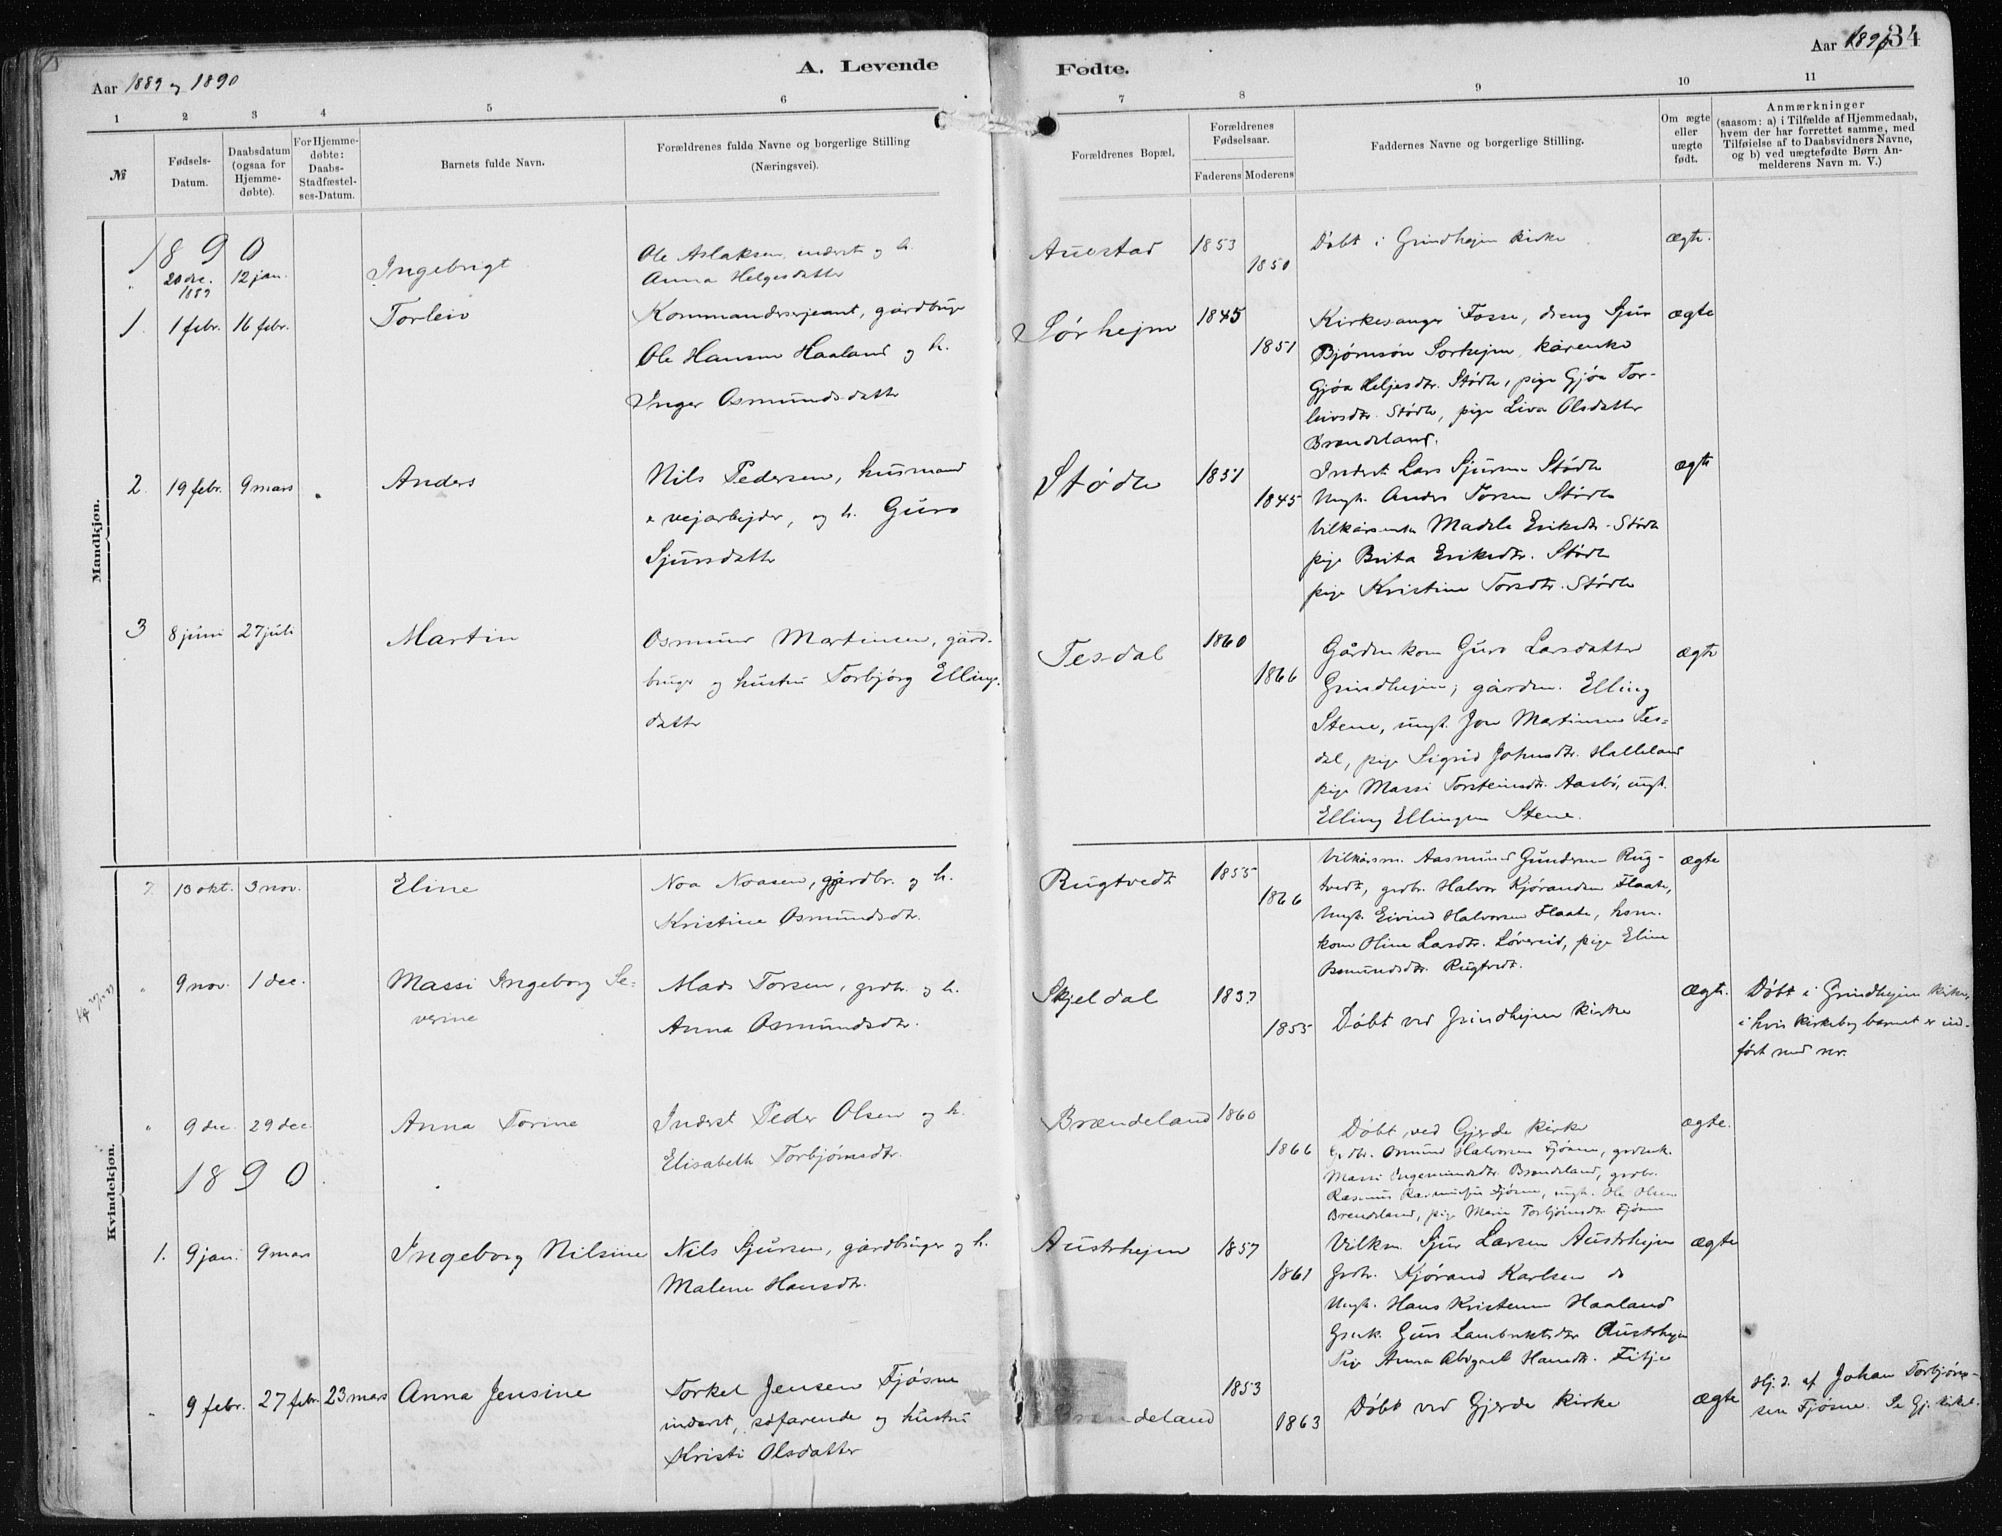 Aar 1889 og 1890
A. Levende
Fødte.
Aar 1890
34
1
2
3
4
5
6
7
8
9
10
11
№
Fødsels-
Datum.
Daabsdatum
(ogsaa for
Hjemme-
døbte).
For Hjemme-
døbte:
Daabs-
Stadfæstel-
ses-Datum.
Barnets fulde Navn.
Forældrenes fulde Navne og borgerlige Stilling
(Næringsvei).
Forældrenes Bopæl.
Forældrenes
Fødselsaar.
Faderens
Moderens
Faddernes Navne og borgerlige Stilling.
Om ægte
eller
uægte
født.
Anmærkninger
(saasom: a) i Tilfælde af Hjemmedaab,
hvem der har forrettet samme, med
Tilføielse af to Daabsvidners Navne,
og b) ved uægtefødte Børn An-
melderens Navn m. V.)
Mandkjøn.
1890
"
20 dec.
1889
12 jan.
Ingebrigt
Ole Aslaksen, inderst og h.
Anna Helgesdatter
Auestad
1853
1850
Døbt i Grindhejm kirke
ægte.
1.
1 febr.
16 febr.
Torleiv
Kommandersergeant, gårdbruger
Ole Hansen Haaland og h.
Inger Osmundsdatter
Sørhejm
1845
1851
Kirkesanger Fosse, dreng Sjur
Bjørnsøn Sørhejm, kårenke
Gjøa Heljesdtr. Stødle, pige Gjøa Tor-
leivsdtr. Stødle, pige Liva Olsdatter
Brændeland.
ægte
2.
19 febr.
9 mars
Anders
Nils Pedersen, husmand
& vejarbejder, og h. Guro
Sjursdatter
Stødle
1851
1845
Inderst Lars Sjursen Stødle
Ungk. Anders Torsen Stødle
Vilkårsenke Madele Eriksdtr. Stødle
pige Brita Eriksdtr. Stødle
pige Kristine Torsdtr. Stødle
ægte
3
8 juni
27 juli
Martin
Osmund Martinsen, gård-
bruger og hustru Torbjørg Ellings-
datter
Tesdal
1860
1866
Gårdm.kone Guro Larsdatter
Grindhejm; gårdm. Elling
Stene, ungk. Jon Martinsen Tes-
dal, pige Sigrid Johnsdtr. Halleland
pige Massi Torsteinsdtr. Aasbø, ungk.
Elling Ellingsen Stene.
ægte
Kvindekjøn.
7.
10 okt.
3 nov.
Eline
Noa Noasen, gårdbr. og h.
Kristine Osmundsdtr.
Rugtvedt
1855
1866
Vilkårsm. Aasmund Gundersen Rug-
tvedt, grdbr. Halvor Kjørandsen Flaate,
Ungk. Eivind Halvorsen Flaate, husm.
kone Oline Larsdtr. Løvereid, pige Eline
Osmundsdtr. Rugtvedt.
ægte
"
9 nov.
1 dec.
Massi Ingeborg Se-
verine
Mads Torsen, grdbr. og h.
Anna Osmundsdtr.
Skjeldal
1837
1855
Døbt ved Grindhejm kirke
ægte.
Døbt i Grindhejm kirke,
i hvis kirkebog barnet er ind-
ført med nr.
"
9 dec.
29 dec.
Anna Torine
Inderst Peder Olsen og h.
Elisabeth Torbjørnsdtr.
Brændeland
1860
1866
Døbt ved Gjerde kirke
Grdbr. Osmund Halvorsen Fjøsne, grdenk.
Massi Ingemundsdtr. Brændeland, grdbr.
Rasmus Rasmussen Fjøsne, ungk. Ole Olsen
Brændeland, pige Marie Torbjørnsdtr. Fjøsne
ægte.
1890
1.
9 jan.
9 mars
Ingeborg Nilsine
Nils Sjursen, gårdbruger og h.
Malene Hansdtr.
Austrhejm
1857
1861
Vilkm. Sjur Larsen Austrhejm
Grdbr. Kjørand Karlsen do
Ungk. Hans Kristensen Haaland
Grenk. Guro Lambriktsdtr Austrhejm
Pige Anna Abigael Hansdtr. Fitje
ægte
"
9 febr.
27 febr.
23 mars
Anna Jensine
Torkel Jensen Fjøsne
inderst, søfarende og hustru
Kristi Olsdatter
Brændeland
1853
1863
Døbt ved Gjerde kirke
ægte
Hj. d. af Johan Torbjørn-
sen Fjøsne. Se Gj. kirkeb.